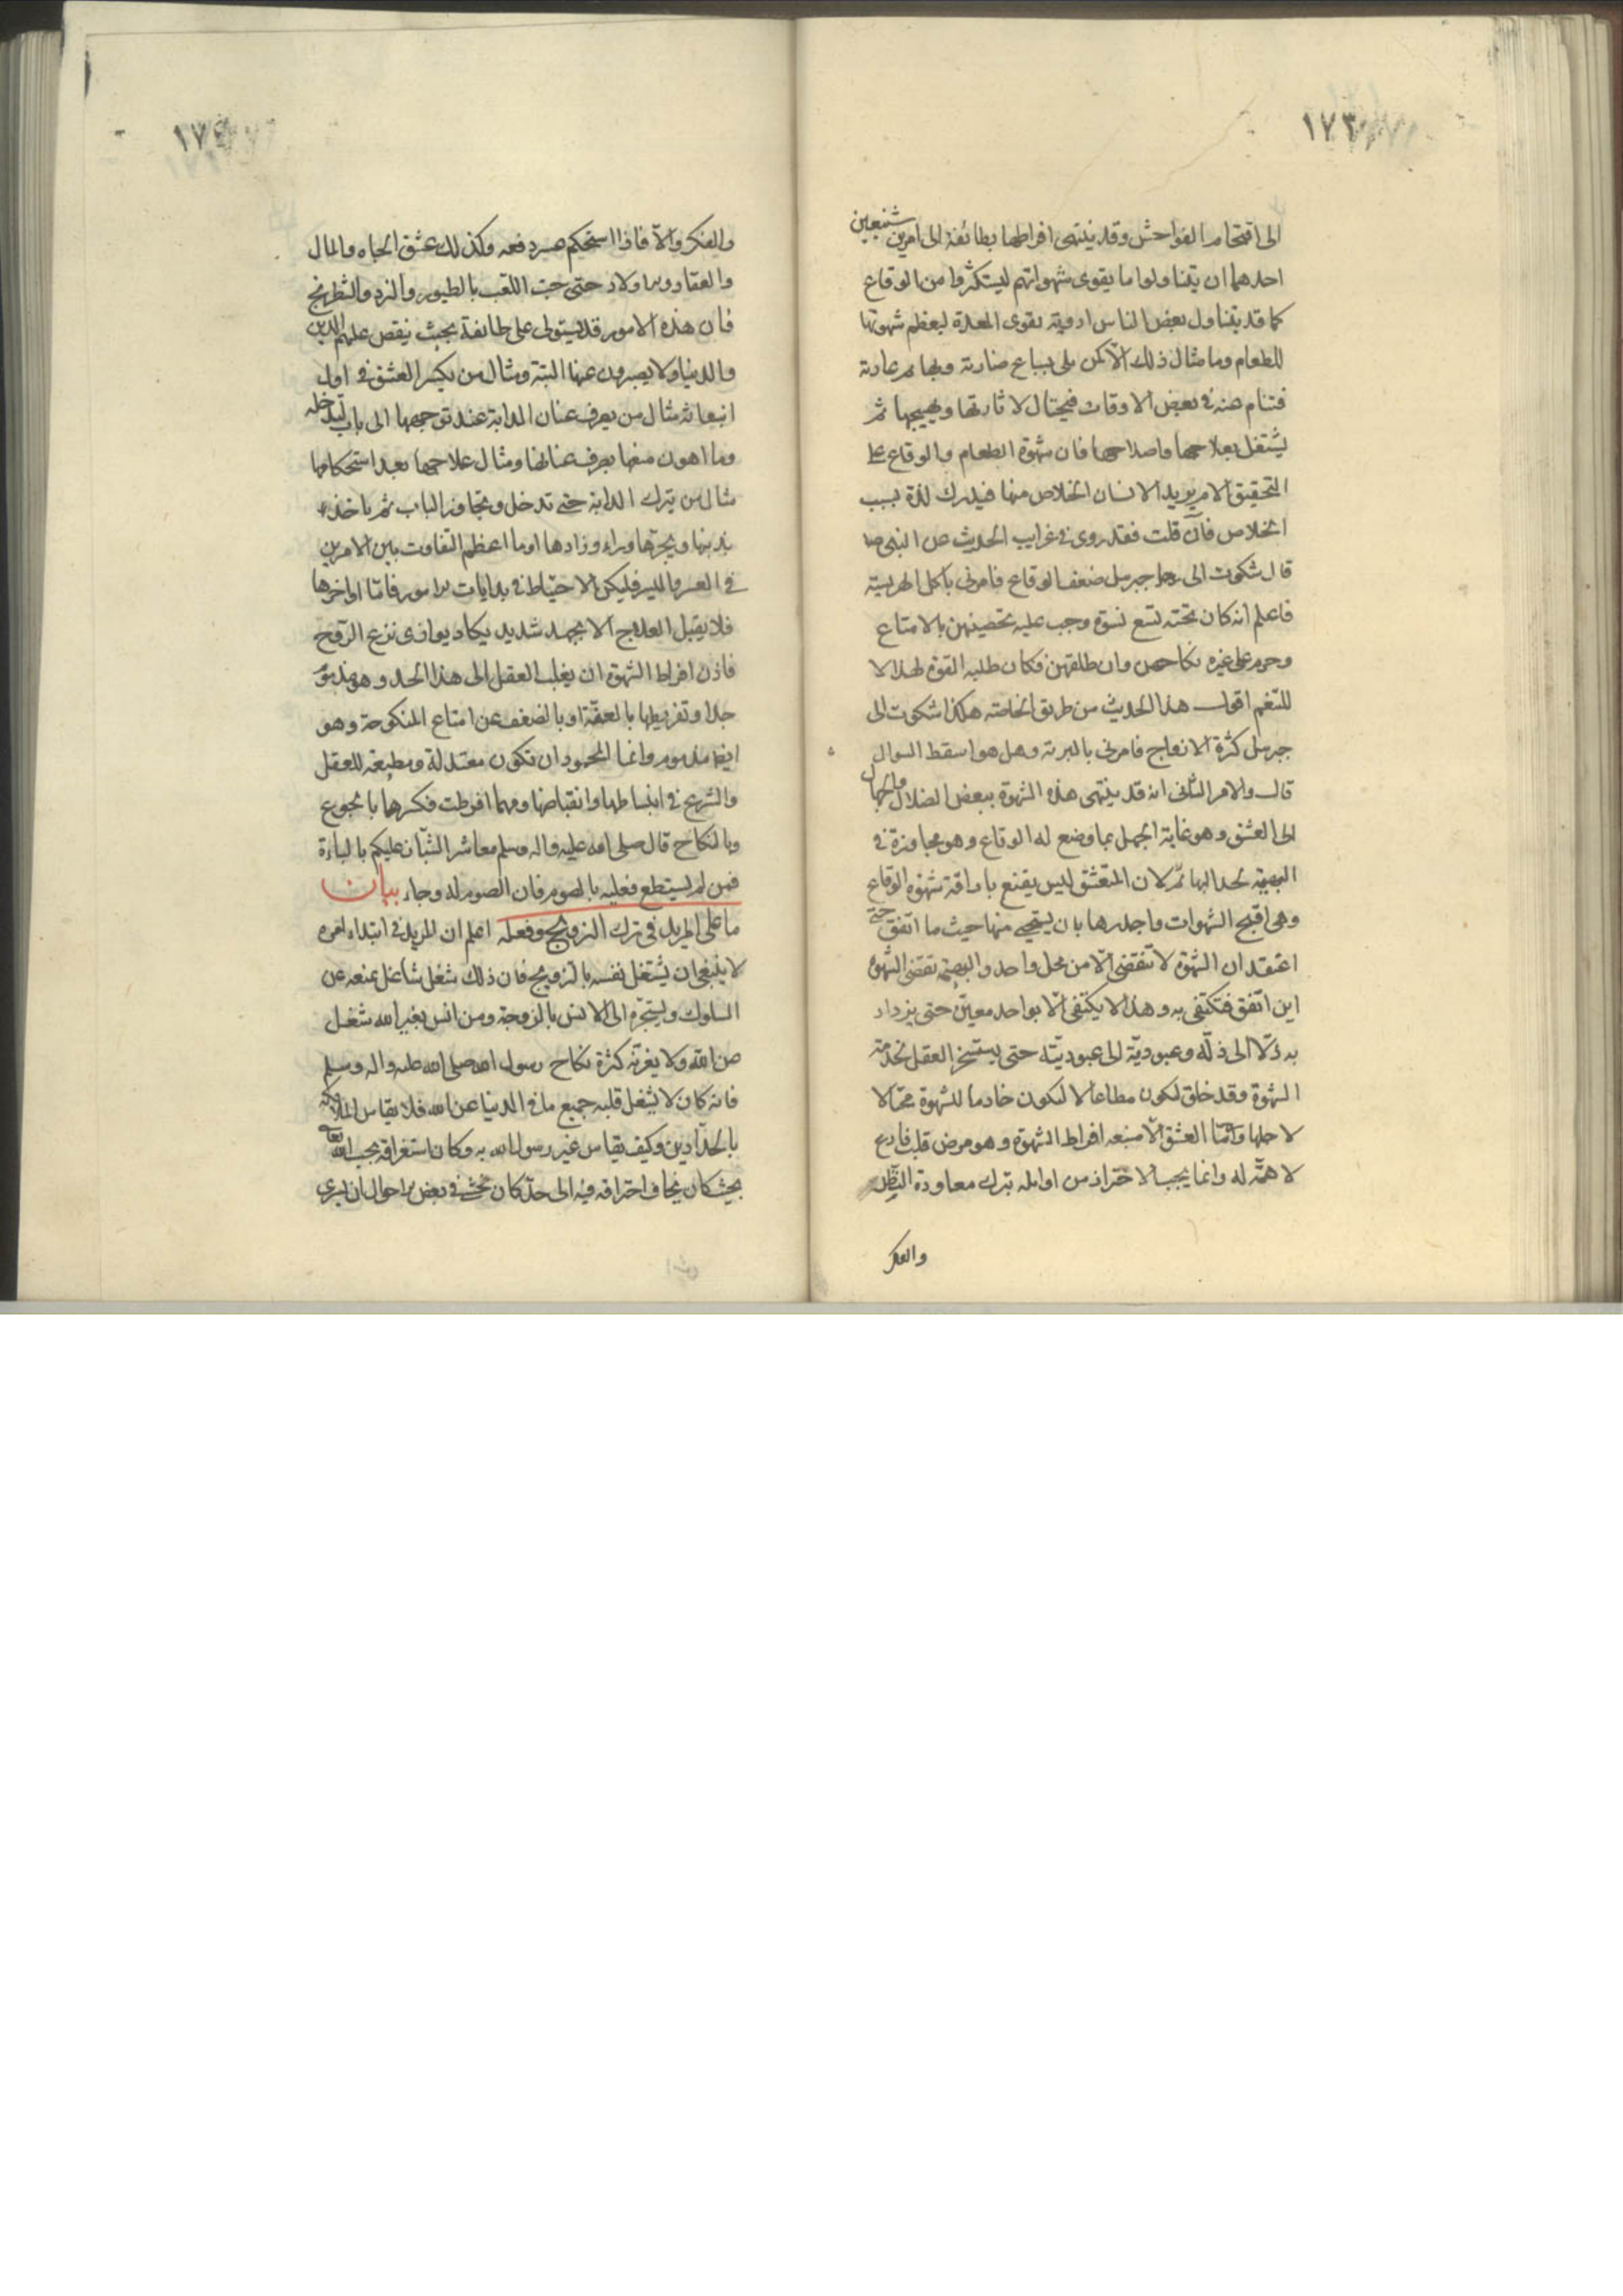 ١٧٣
الى اقتحام الفواحش وقد ينتهى افراطها بطائفة الى امرين شنيعين
احدهما ان يتناولوا ما يقوى شهواتهم ليستكثروا من الوقاع
كما قد يتناول بعض الناس ادوية يقوى المعدة ليعظم شهوتها
للطعام وما مثال ذلك الا كمن بلى بسباع ضارية وبهايم عادية
فتنام عنه فى بعض الاوقات فيحتال لاثارتها وتهييجها ثم
يشتغل بعلاجها واصلاحها فان شهوة الطعام والوقاع على
التحقيق الام يريد الانسان الخلاص منها فيدرك لذة بسبب
الخلاص فان قلت فقد روى فى غرايب الحديث ص النبى
قال شكوت الى جبرئيل ضعف الوقاع فامرنى باكل الهريسة
فاعلم انه كان تحته تسع نسوة وجب عليه تحصينهن بالامتاع
وحرم على غيره نكاحهن وان طلقهن فكان طلبه القوة لهذا لا
للتنعم اقول هذا الحديث من طريق الخاصة هكذا شكوت الى
جبرئيل كثرة الازواج فامرنى بالهريسة وهل هو اسقط السوال
قال والامر الثانى انه قد ينتهى هذه الشهوة ببعض الضلال والجهال
الى العشق وهو غاية الجهل بما وضع له الوقاع وهو مجاوزة فى
البهيمية لحد البهائم لان المتعشق ليس يقنع باراقة شهوة الوقاع
وهى اقبح الشهوات واجدرها بان يستحيى منها حيث ما اتفق حتى
اعتقد ان الشهوة لا تنقضى الّا من محل واحد والبهيمة تقضى الشهوة
اين اتفق فتكتفى به وهذا لا يكتفى الّا بواحد معيّن حتى يزداد
به ذلّا الى ذلّه وعبوديّة الى عبوديّته حتى يستسخر العقل لخدمة
الشهوة وقد خلق لكون مطاعا لا لتكون خادما للشهوة محتالا
لاجلها وامّا العشق الّا منبعه افراط الشهوة وهو مرض قلب فارغ
لا همّة له وانما يجب الاحتراز من اوايله بترك معاودة النظر
والفكر
١٧٤
والفكر والّا فاذا استحكم عسر دفعه وكذلك عشق الجاه والمال
والعقار والاولاد حتى حبّ اللعب بالطيور والنرد والشطرنج
فان هذه الامور قد يستولى على طائفة بحيث ينقص عليهم الدين
والدنيا ولا يصبرون عنها البتة ومثال من يكسر العشق فى اول
انبعاثه مثال من يصرف عنان الدابة عند توجهها الى باب لتدخله
وما اهون منعها بصرف عنانها ومثال علاجها بعد استحكامها
مثال من يترك الدابة حتى تدخل وتجاوز الباب ثم ياخذ
بذنبها ويجرّها وراء وما اعظم التفاوت بين الامرين
فى العسر واليسر فليكن الاحتياط فى بدايات الامور فامّا اواخرها
فلا يقبل العلاج الا بجهد شديد يكاد يوازى نزع الرّوح
فاذن افراط الشهوة ان يغلب العقل الى هذا الحد وهو مذموم
جدا وتفريطها بالعفّة او بالضعف عن امتاع المنكوحة وهو
ايضا مذموم وانما المحمود ان تكون معتدلة ومطيعة للعقل
والشرع فى انبساطها وانقباضها ومهما افرطت فكسرها بالجوع
وبالنكاح قال صلى الله عليه واله وسلم معاشر الشبّان عليكم بالباءة
فمن لم يستطع فعليه بالصوم فان الصوم له وجاء بيان
ما على المريد فى ترك التزويج وفعله اعلم ان المريد فى ابتداء امره
لا ينبغى ان يشتغل نفسه بالتزويج فان ذلك شغل شاغل يمنعه عن
السلوك ويستجرّه الى الانس بالزوجة ومن انس بغير الله شغل
عن الله ولا يغرنّه كثرة نكاح رسول الله صلى الله عليه واله وسلم
فانه كان لا يشغل قلبه جميع ما فى الدنيا عن الله فلا يقاس الملائكة
بالحدّادين وكيف يقاس غير رسول الله به وكان استغراقه بحب الله تعالى
بحيث كان يخاف احتراقه فيه الى حدّ كان يخشى فى بعض الاحوال ان يسرى